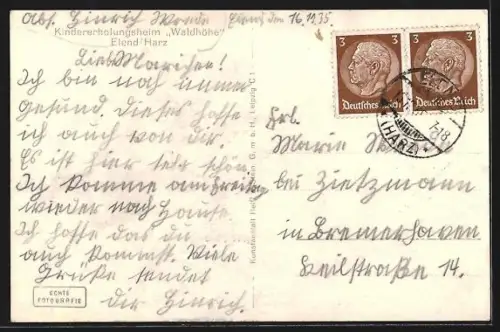 Abs. Hinrich
Elend den 16.12.35.
Kindererholungsheim „Waldhöhe“
Elend/Harz
Liebe Mariechen!
Ich bin noch immer
gesund. Dieses hoffe
ich auch von dir.
Es ist hier sehr schön.
Ich komme am Freitag
wieder nach Hause.
Ich hoffe das du
auch kommst. Viele
Grüße sendet
dir Hinrich.
ECHTE
FOTOGRAFIE
G. m. b. H., Leipzig C 1
3 3
Deutsches Reich Deutsches Reich
(HARZ)
Frl.
Marie
bei Zietzmann
in Bremerhaven
Keilstraße 14.